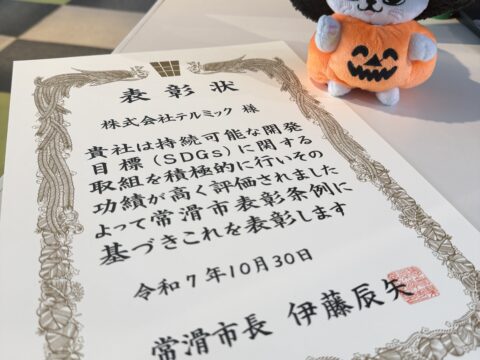 表彰状
株式会社テルミック 様
貴社は持続可能な開発
目標(SDGs)に関する
取組を積極的に行いその
功績が高く評価されました
よって常滑市表彰条例に
基づきこれを表彰します
令和7年10月30日
常滑市長 伊藤辰矢